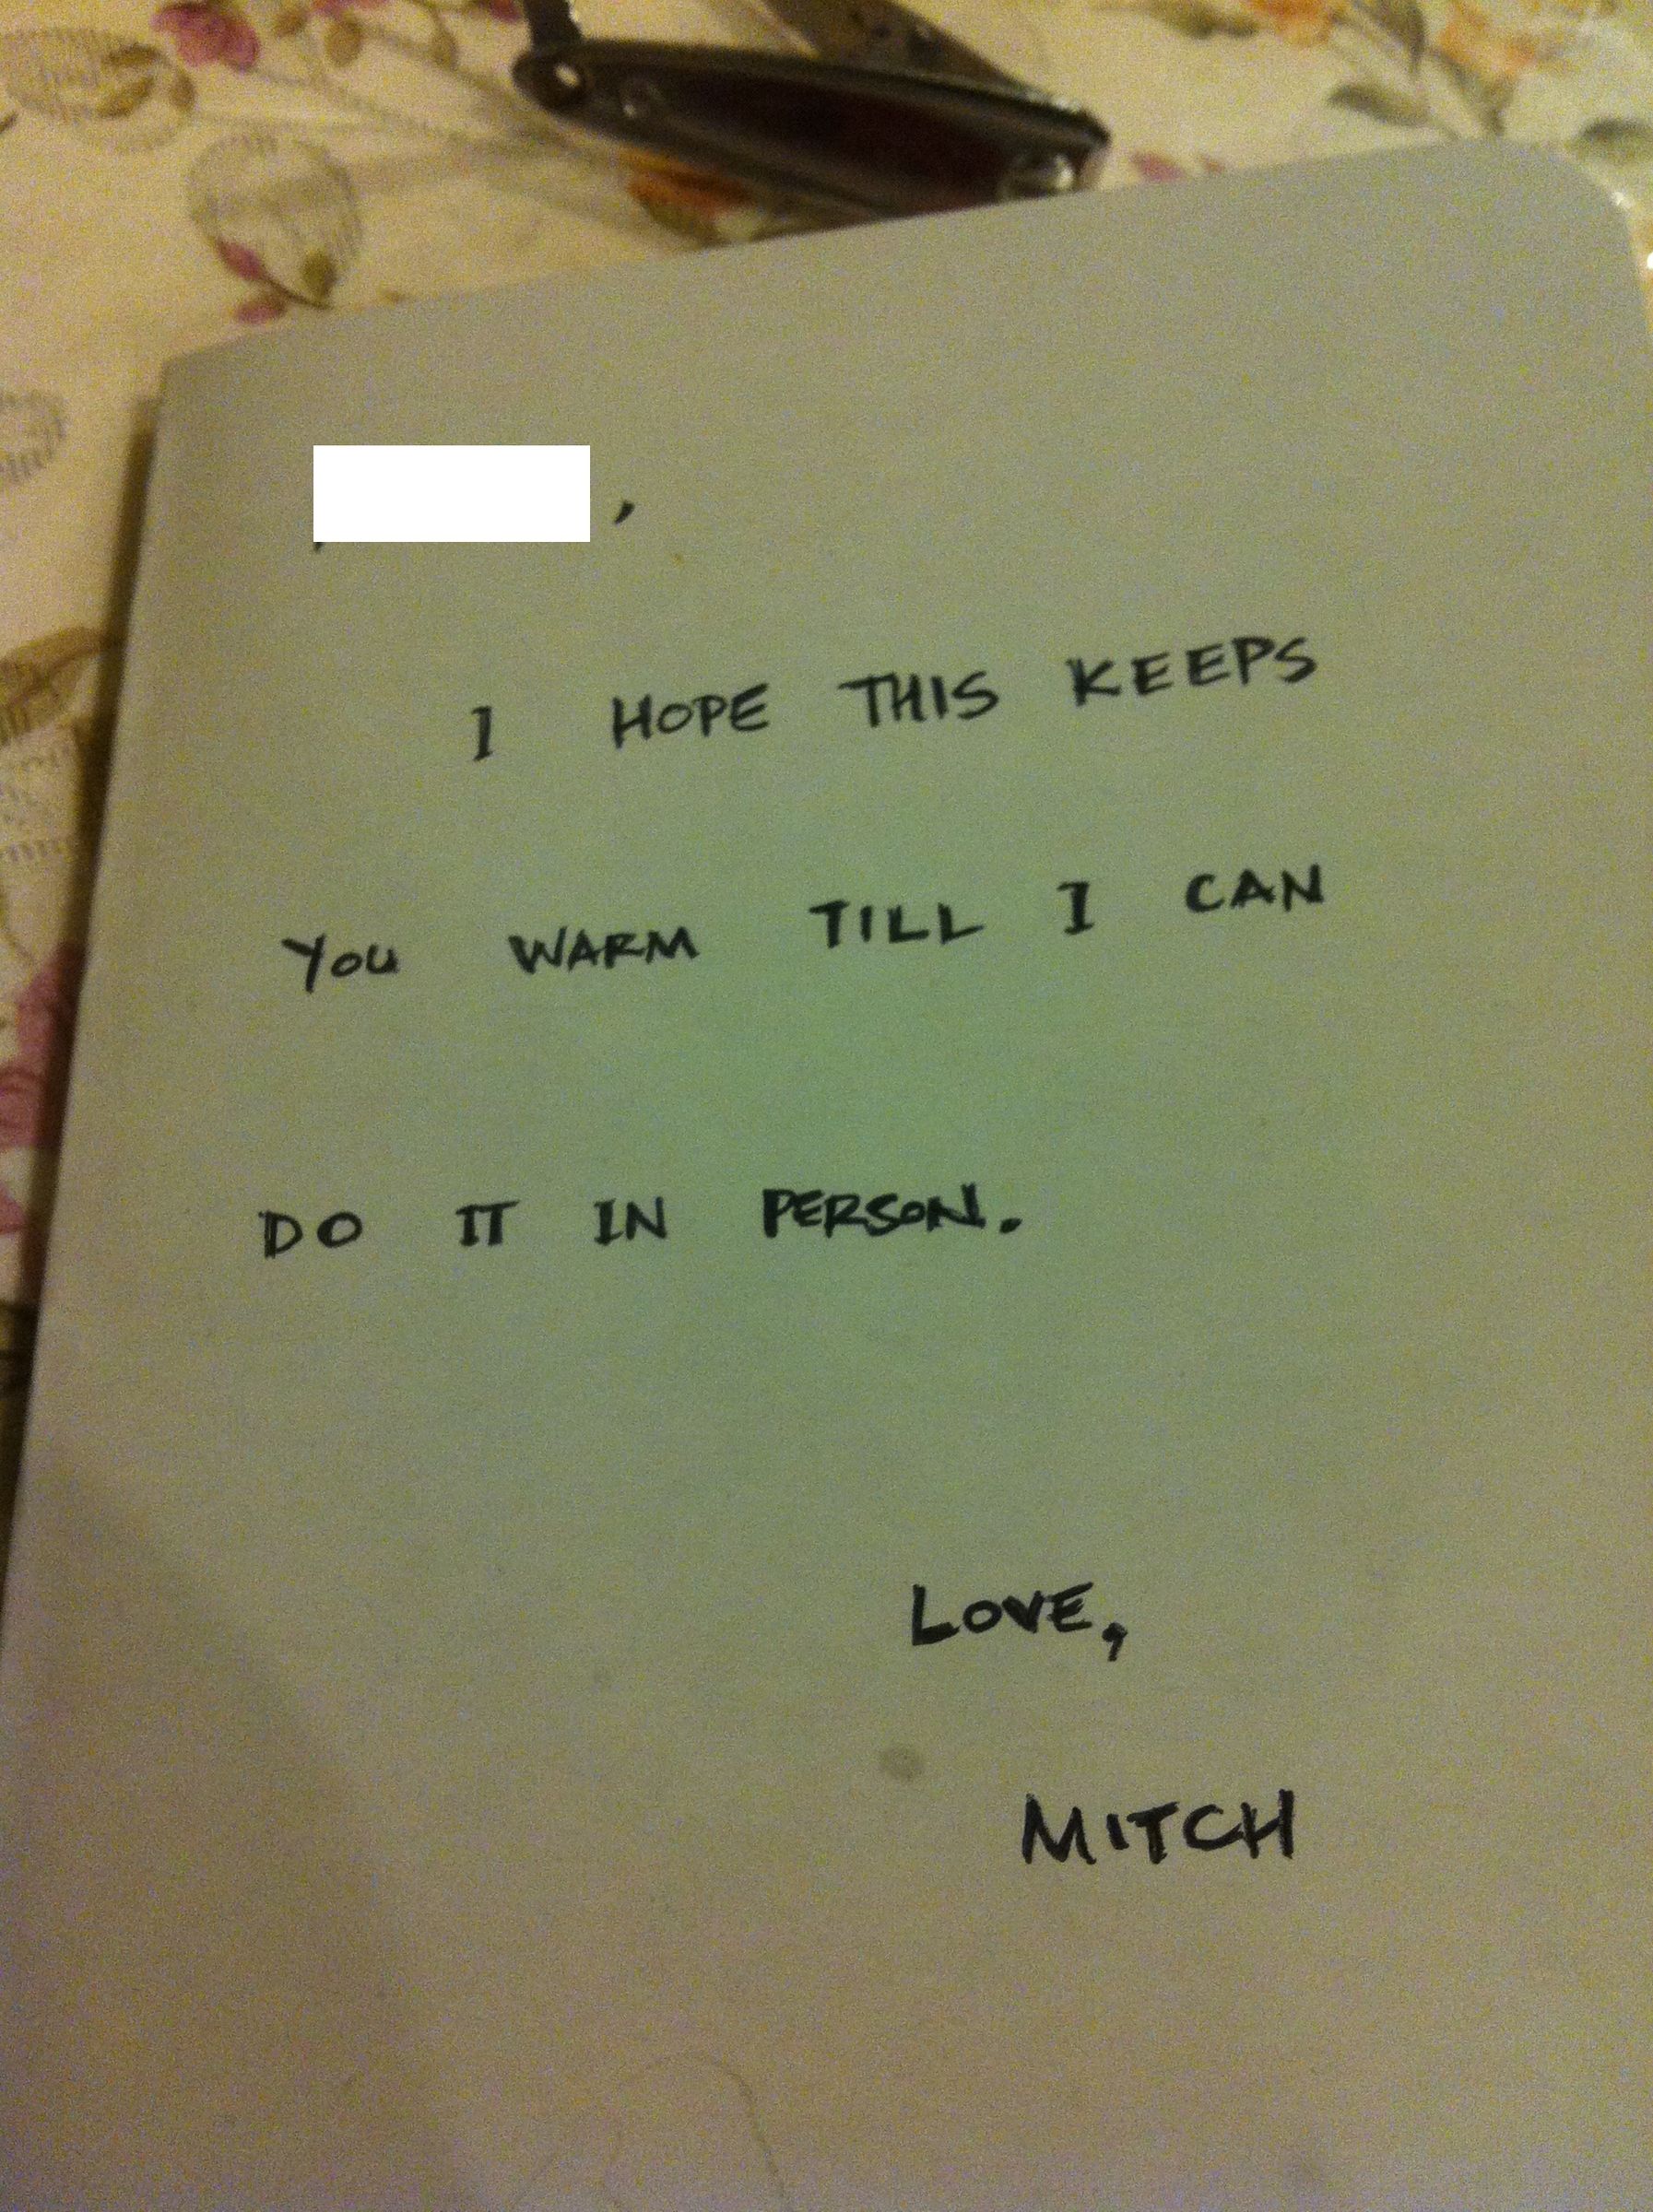 ,
I HOPE THIS KEEPS
YOU WARM TILL I CAN
DO IT IN PERSON.
LOVE,
MITCH